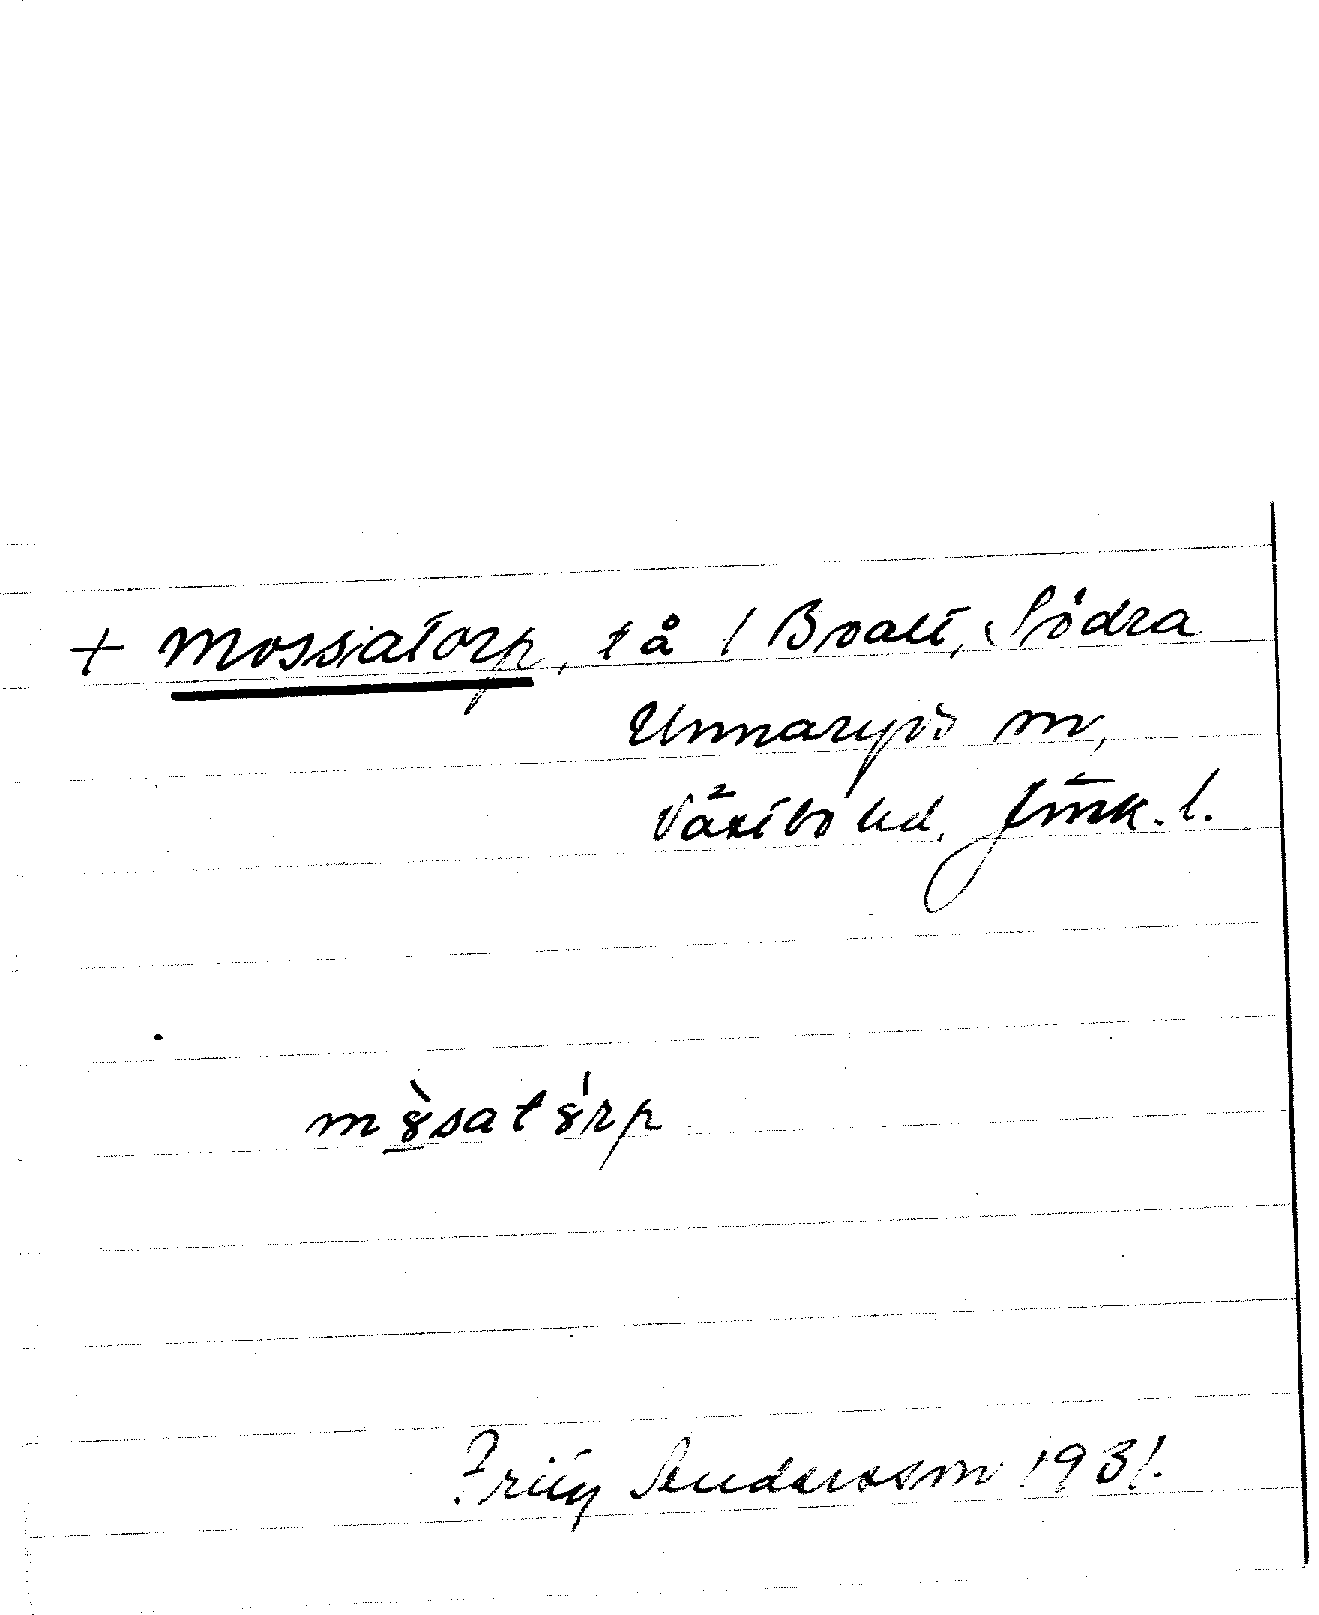 + Mossatorp, t å 1 Boalt, Södra
Unnaryds sn,
Västbo hd. Jönk. l.
mo̱̊̀satǻrp
Fritz Andersson 1931.